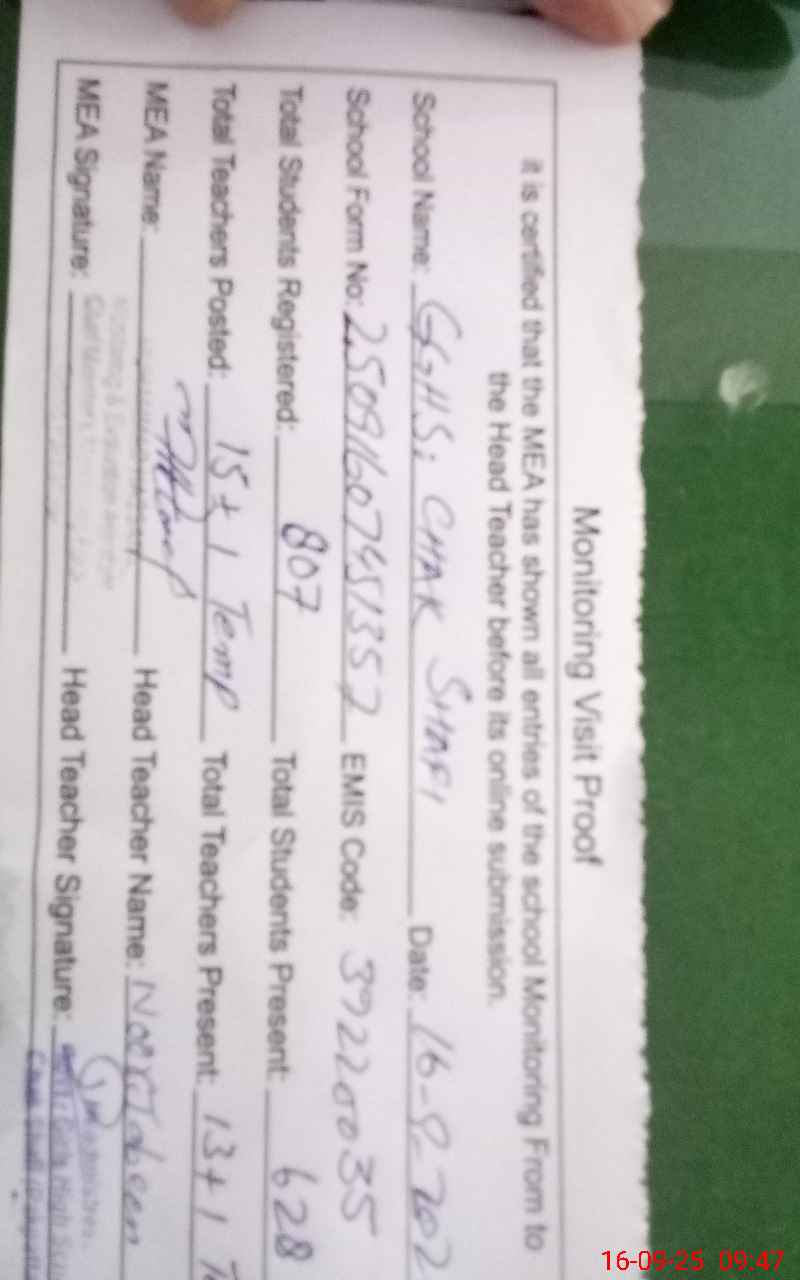 Monitoring Visit Proof
it is certified that the MEA has shown all entries of the school Monitoring From to
the Head Teacher before its online submission.
School Name: GGHS, CHAK SHAFI Date: 16-9-202
School Form No: 250916074513 EMIS Code: 39220035
Total Students Registered: 807 Total Students Present: 628
Total Teachers Posted: 15+1 Temp Total Teachers Present: 13+1
MEA Name: Head Teacher Name:
MEA Signature: Head Teacher Signature:
16-09-25 09:47